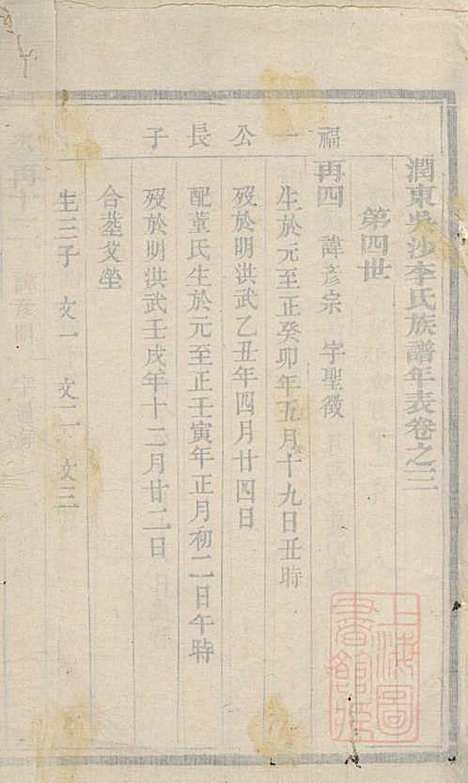 潤東吳沙李氏族譜年表卷之三
第四世
福一公長子
再四　諱彥宗　字聖徵
生於元至正癸卯年五月十九日丑時
歿於明洪武乙丑年四月廿四日
配董氏生於元至正壬寅年正月初二日午時
歿於明洪武壬戌年十二月廿二日
合墓艾塋
生三子　文一　文二　文三
上海圖書館藏